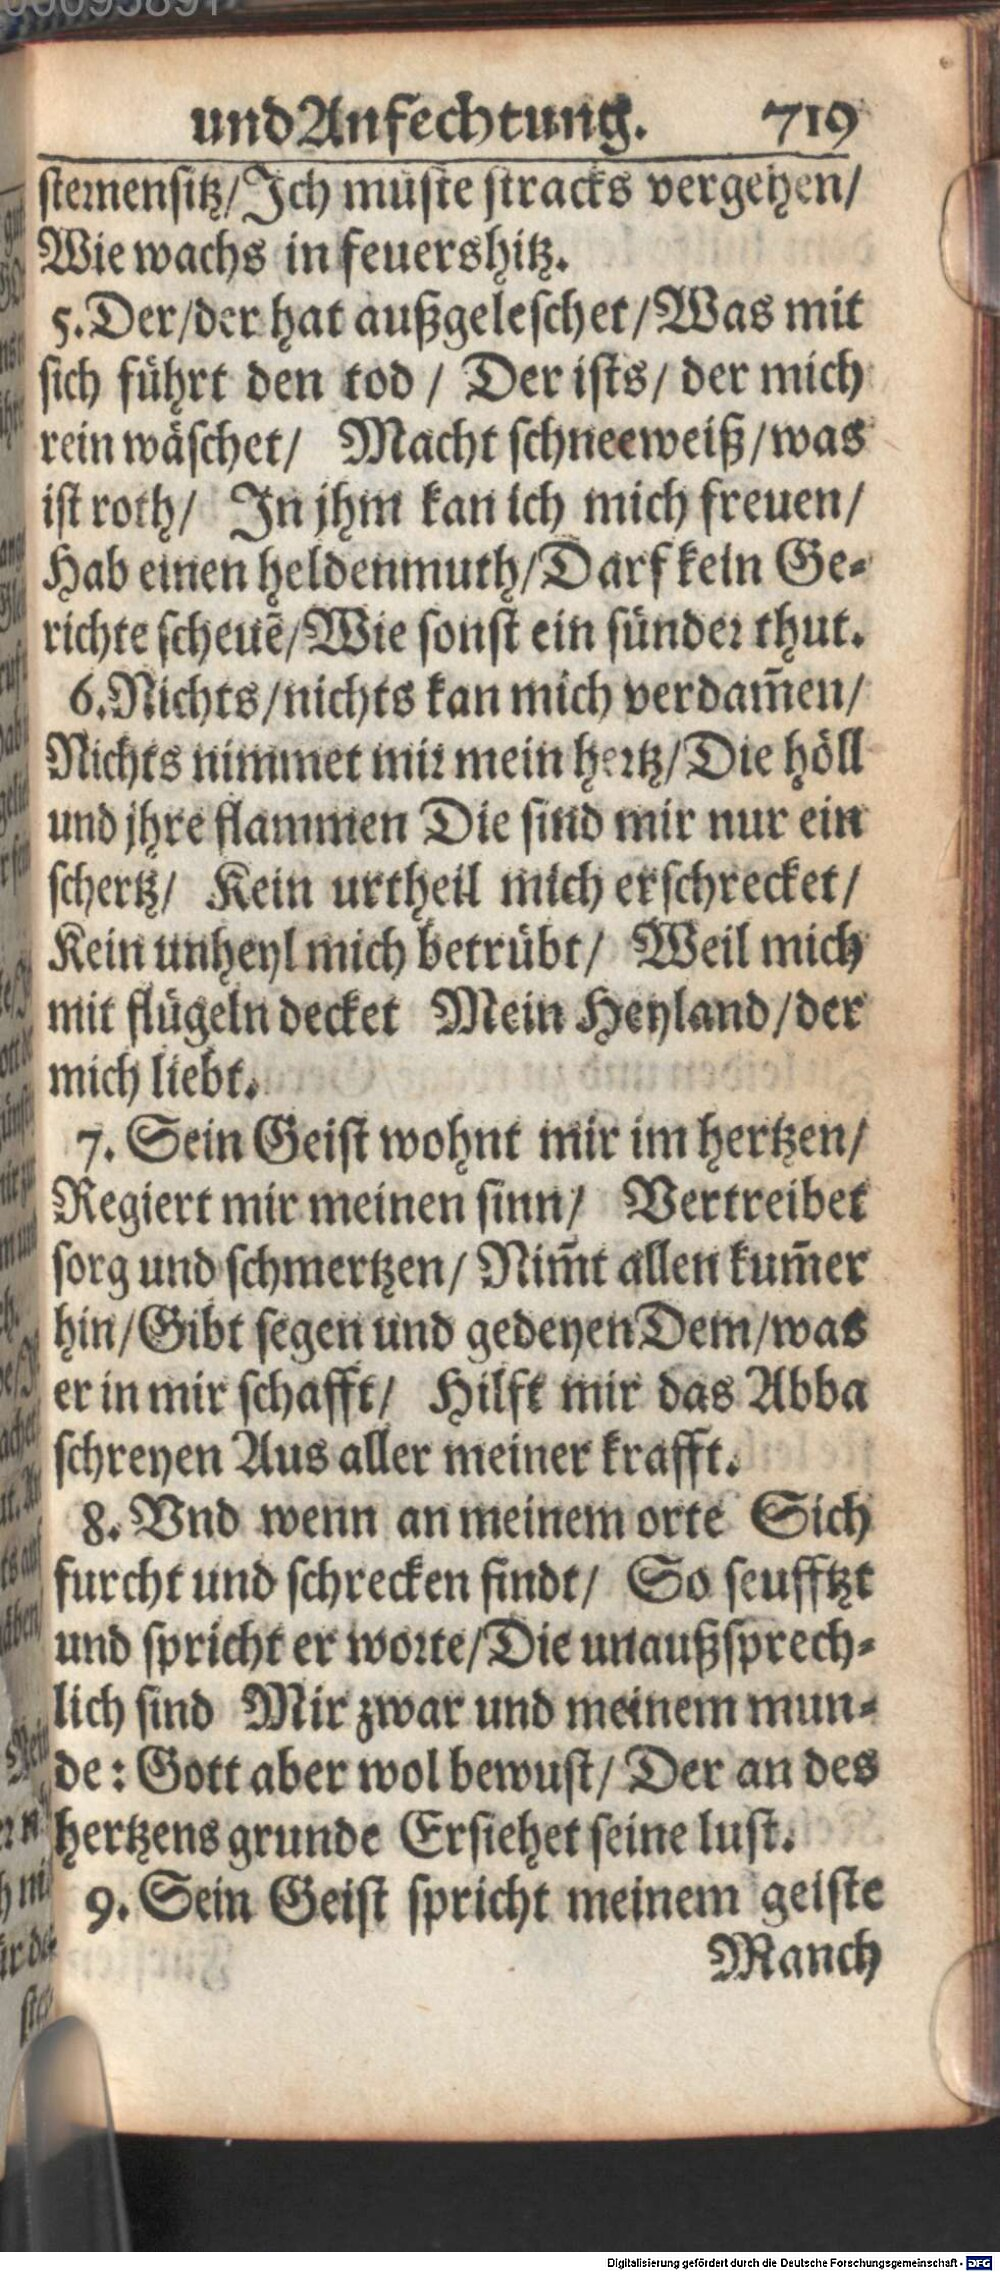 00095891
und Anfechtung. 719
sternensitz/Ich müste stracks vergehen/
Wie wachs in feuershitz.
5. Der/der hat außgeleschet/Was mit
sich führt den tod/ Der ists/ der mich
rein wäschet/ Macht schneeweiß/was
ist roth/ In jhm kan ich mich freuen/
Hab einen heldenmuth/Darf kein Ge-
richte scheuē/Wie sonst ein sünder thut.
6. Nichts/nichts kan mich verdam̄en/
Nichts nimmet mir mein hertz/Die höll
und jhre flammen Die sind mir nur ein
schertz/ Kein urtheil mich erschrecket/
Kein unheyl mich betrübt/ Weil mich
mit flügeln decket Mein Heyland/der
mich liebt.
7. Sein Geist wohnt mir im hertzen/
Regiert mir meinen sinn/ Vertreibet
sorg und schmertzen/ Nim̄t allen kum̄er
hin/Gibt segen und gedeyen Dem/was
er in mir schafft/ Hilft mir das Abba
schreyen Aus aller meiner krafft.
8. Vnd wenn an meinem orte Sich
furcht und schrecken findt/ So seufftzt
und spricht er worte/Die unaußsprech-
lich sind Mir zwar und meinem mun-
de: Gott aber wol bewust/ Der an des
hertzens grunde Ersiehet seine lust.
9. Sein Geist spricht meinem geiste
Manch
Digitalisierung gefördert durch die Deutsche Forschungsgemeinschaft - DFG